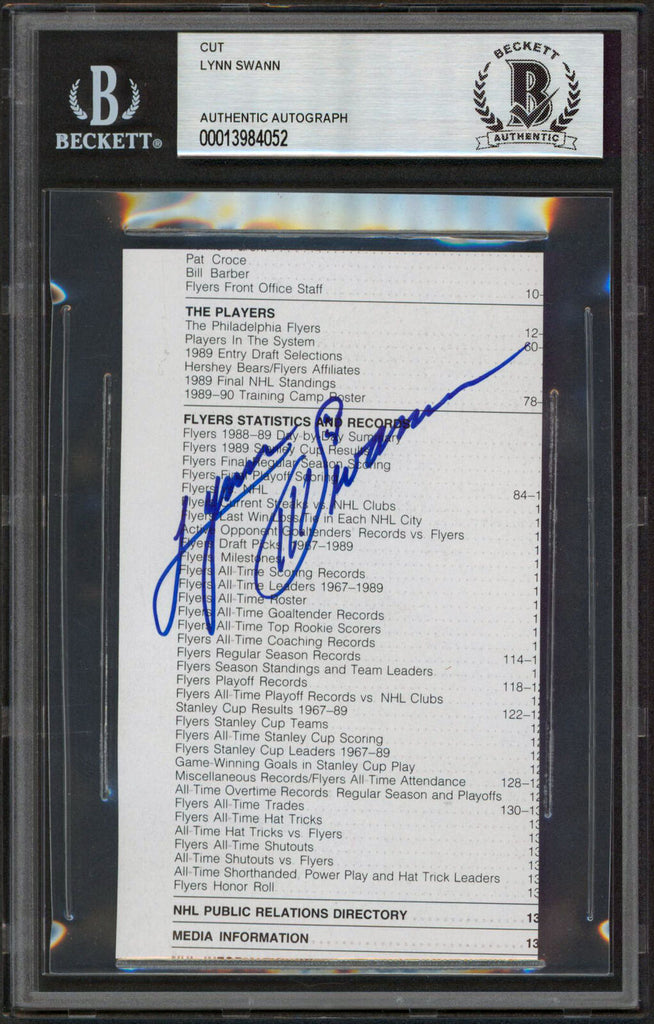 BECKETT®
CUT
LYNN SWANN
AUTHENTIC AUTOGRAPH
00013984052
BECKETT
B
AUTHENTIC
Pat Croce
Bill Barber
Flyers Front Office Staff 10-
THE PLAYERS
The Philadelphia Flyers 12-
Players In The System 60-
1989 Entry Draft Selections
Hershey Bears/Flyers Affiliates
1989 Final NHL Standings
1989-90 Training Camp Roster 78-
FLYERS STATISTICS AND RECORDS
Flyers 1988-89 Day by Day Summary
Flyers 1989 Stanley Cup Results
Flyers Final Regular Season Scoring
Flyers Final Playoff Scoring
Flyers NHL 84-1
Flyers Current Streaks vs. NHL Clubs 1
Flyers Last Win/Loss/Tie in Each NHL City 1
Active Opponent Goaltenders Records vs. Flyers 1
Flyers Draft Picks 1967-1989 1
Flyers Milestones 1
Flyers All-Time Scoring Records 1
Flyers All-Time Leaders 1967-1989 1
Flyers All-Time Roster 1
Flyers All-Time Goaltender Records 1
Flyers All-Time Top Rookie Scorers 1
Flyers All-Time Coaching Records 1
Flyers Regular Season Records 114-1
Flyers Season Standings and Team Leaders 1
Flyers Playoff Records 118-12
Flyers All-Time Playoff Records vs. NHL Clubs 12
Stanley Cup Results 1967-89 122-12
Flyers Stanley Cup Teams 12
Flyers All-Time Stanley Cup Scoring 12
Flyers Stanley Cup Leaders 1967-89 12
Game-Winning Goals in Stanley Cup Play 12
Miscellaneous Records/Flyers All-Time Attendance 128-12
All-Time Overtime Records: Regular Season and Playoffs 12
Flyers All-Time Trades 130-13
Flyers All-Time Hat Tricks 13
All-Time Hat Tricks vs. Flyers 13
Flyers All-Time Shutouts 13
All-Time Shutouts vs. Flyers 13
All-Time Shorthanded, Power Play and Hat Trick Leaders 13
Flyers Honor Roll 13
NHL PUBLIC RELATIONS DIRECTORY 13
MEDIA INFORMATION 13
Lynn Swann